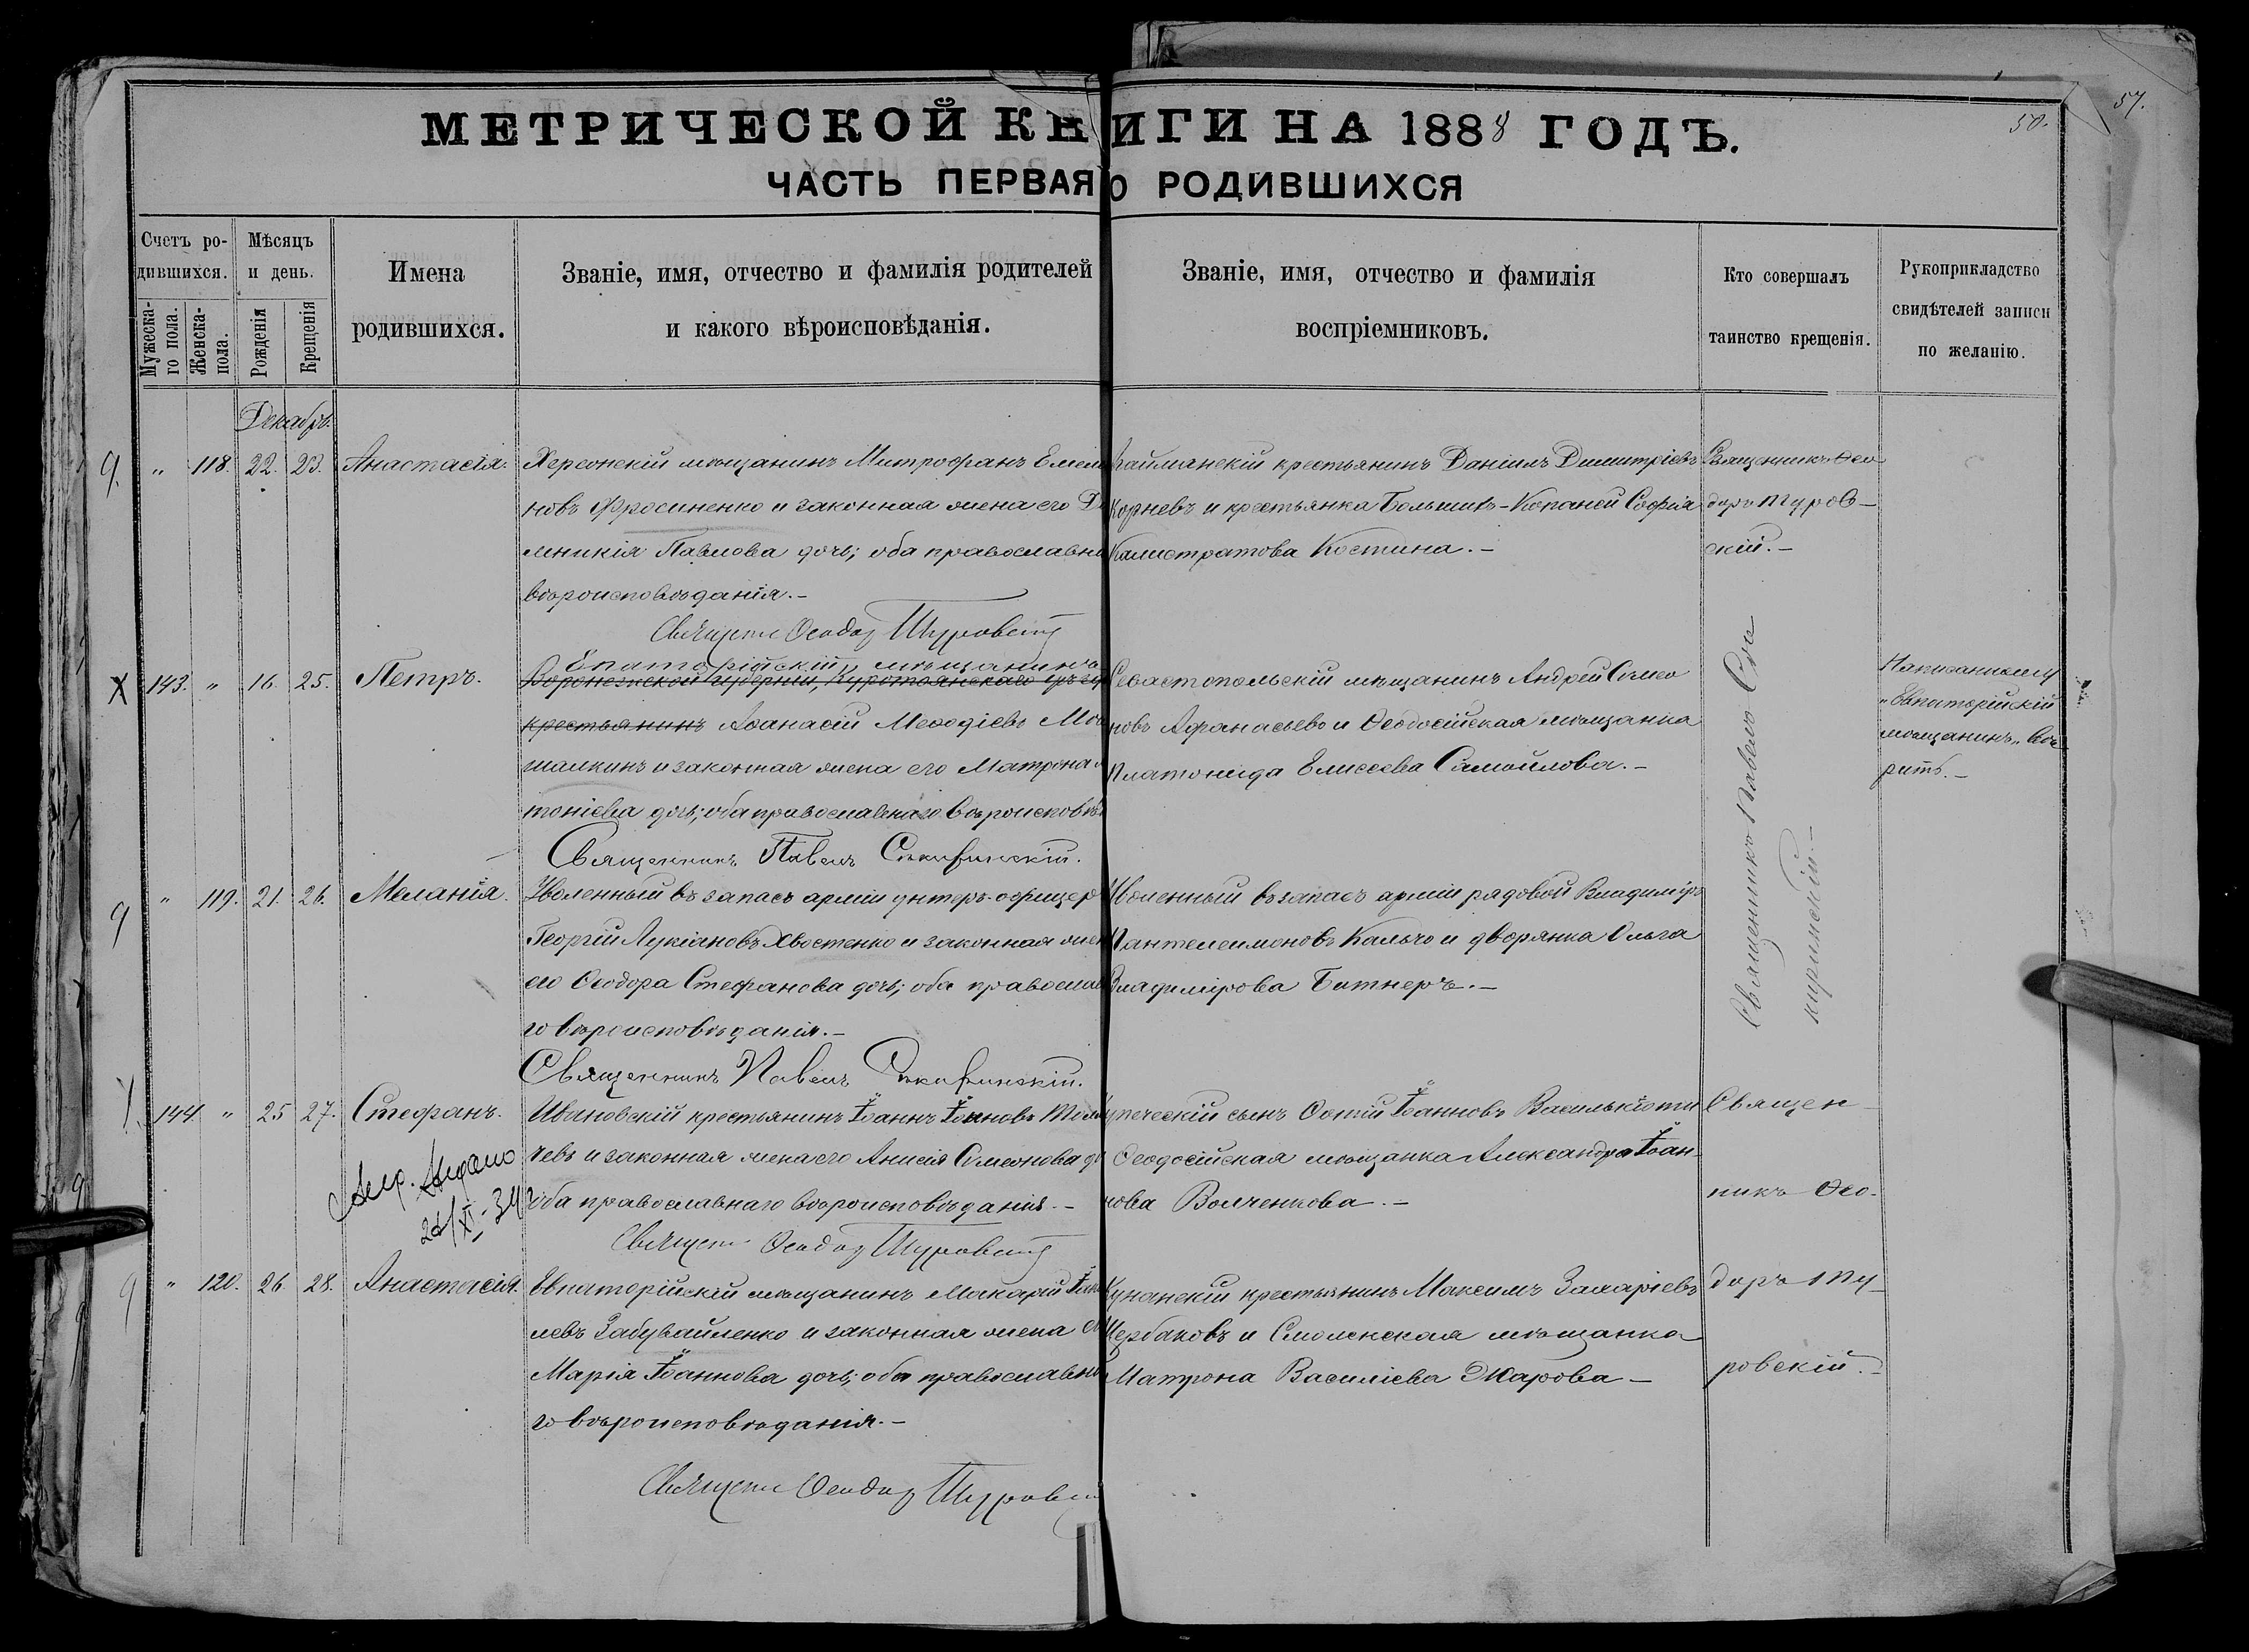 57.
50.
МЕТРИЧЕСКОЙ КНИГИ НА 1888 ГОДЪ.
ЧАСТЬ ПЕРВАЯ О РОДИВШИХСЯ
Счетъ родившихся.
Мужескаго пола.
Женска- пола.
Мѣсяцъ и день.
Рожденія
Крещенія
Имена
родившихся.
Званіе, имя, отчество и фамилія родителей
и какого вѣроисповѣданія.
Званіе, имя, отчество и фамилія
воспріемниковъ.
Кто совершалъ
таинство крещенія.
Рукоприкладство
свидѣтелей записи
по желанію.
Декабрь
" 118. 22. 23. Анастасія.
Херсонскій мѣщанинъ Митрофанъ Емел
новъ Фросиненко и законная жена его До
мникія Павлова дочь; оба православна
вѣроисповѣданія.-
Священ Ѳеодор Туровскій
крестьянинъ Даніилъ Димитріевъ
Корневъ и крестьянка Большихъ-Копаней Софія
Калистратова Костина.-
Священникъ Ѳео
доръ Туров-
скій.-
143. " 16. 25. Петръ.
Епаторійскій мѣщанинъ
Воронежской губерніи, Коротоякскаго уѣзда
крестьянинъ Аѳанасій Меѳодіевъ Мо
шалкинъ и законная жена его Матрона
тоніева дочь; оба православнаго вѣроисповѣ
Священникъ Павелъ
Севастопольскій мѣщанинъ Андрей Симео
новъ Афанасьевъ и Ѳеодосійская мѣщанка
Платонида Елисеева Самойлова.-
Написанному
"Евпаторійскій
мѣщанинъ" вѣ-
рить.-
" 119. 21. 26. Меланія.
Уволенный въ запасъ арміи унтеръ-офицеръ
Георгій Лукіановъ Хвостенко и законная жен
его Ѳеодора Стефанова дочь; оба православ
го вѣроисповѣданія.-
Священникъ Павелъ
Уволенный въ запасъ арміи рядовой Владиміръ
Пантелеимоновъ Кальчо и дворянка Ольга
Владимірова Битнеръ.-
Священникъ Павелъ
144. " 25 27. Стефанъ.
26/XI-34
Ивановскій крестьянинъ Іоаннъ Іоанновъ Тол
чевъ и законная жена его Анисія Симеонова до
оба православнаго вѣроисповѣданія.-
Священ Ѳеодор Туровскій
Купеческій сынъ Фотій Іоанновъ Василькіоти
Ѳеодосійская мѣщанка Александра Іоан-
нова Волченкова.-
Священ-
никъ Ѳео-
" 120. 26. 28. Анастасія.
Евпаторійскій мѣщанинъ Макарій
левъ Забувайленко и законная жена
Марія Іоаннова дочь; оба православна
го вѣроисповѣданія.-
Священ Ѳеодор Туровск
крестьянинъ Максимъ Захаріевъ
Щербаковъ и Смоленская мѣщанка
Матрона Василіева Жарова-
доръ Ту-
ровскій.-